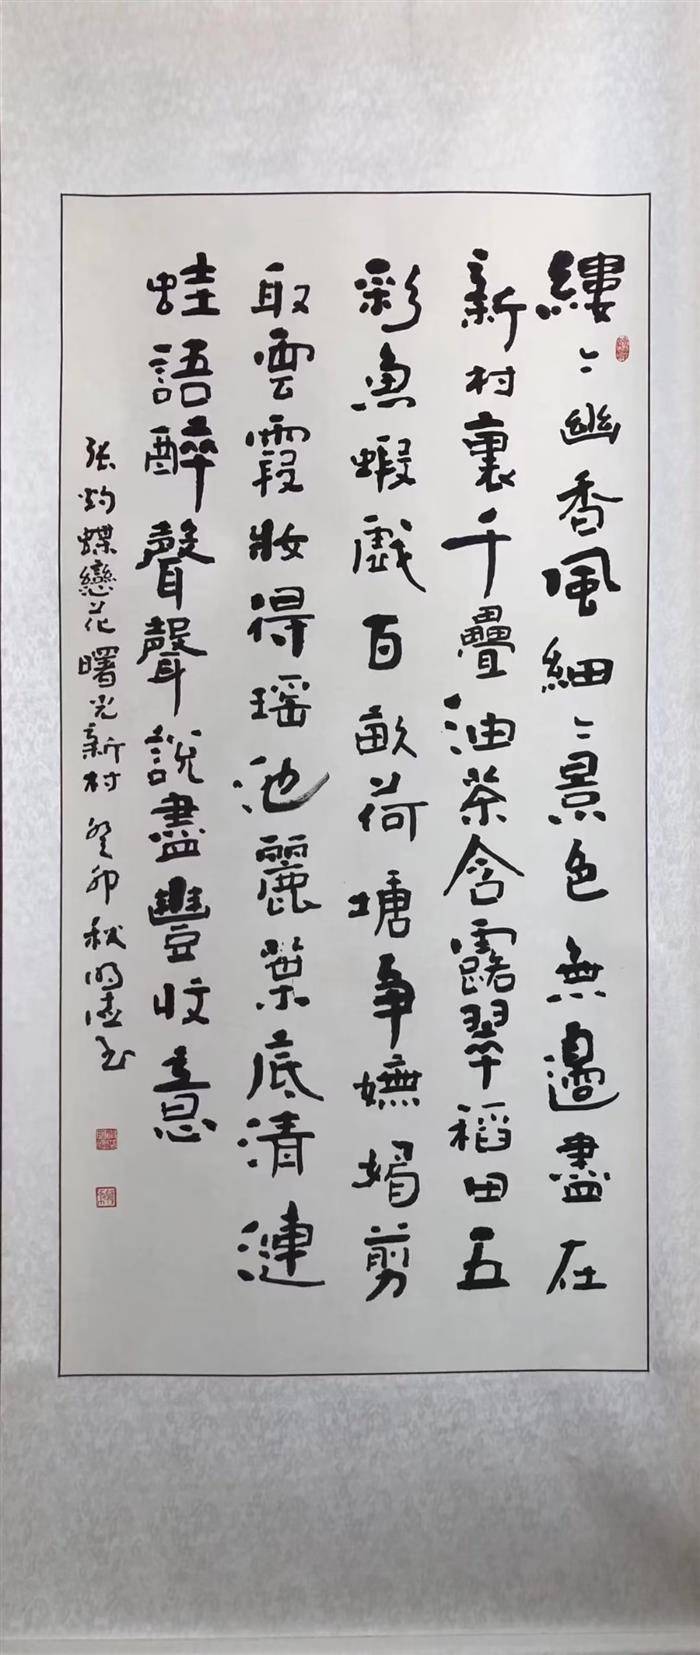 縷〻幽香風細〻景色無邊盡在
新村裏千疊油茶含露翠稻田五
彩魚蝦戲百畝荷塘爭嫵媚剪
取雲霞妝得瑤池麗葉底清漣
蛙語醉聲聲說盡豐收意
張灼蝶戀花曙光新村 癸卯秋 书